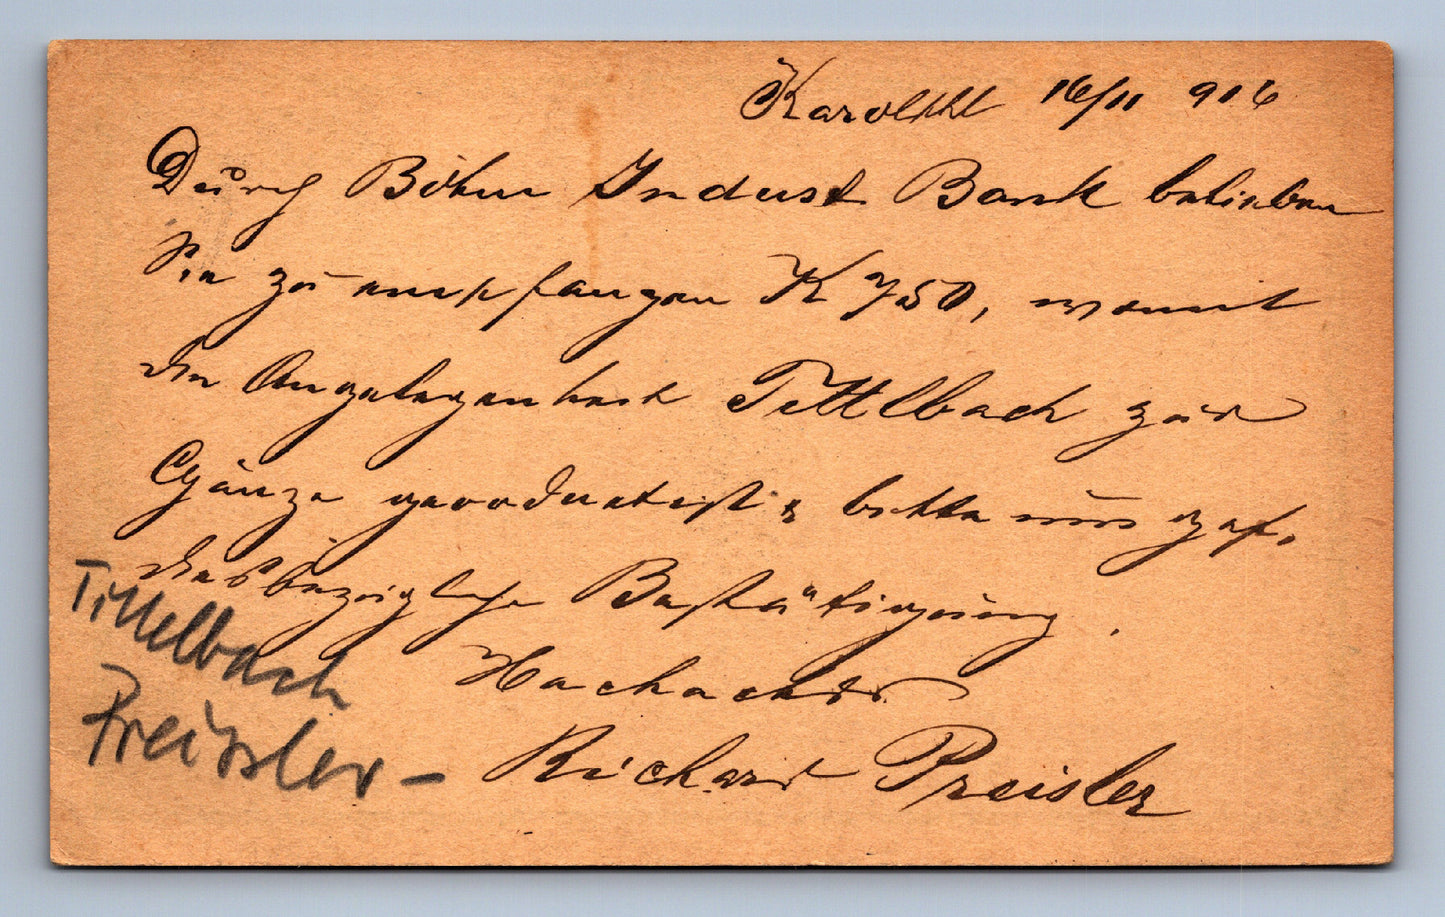 16/11 916
Durch Böhm Indust Bank belieben
Sie zu empfangen K 750, womit
die Angelegenheit Tittlbach zur
Gänze geordnet ist & bitte um gef.
diesbezügliche Bestätigung.
Hochachtd
Richard Preisler
Tittelbach
Preissler –